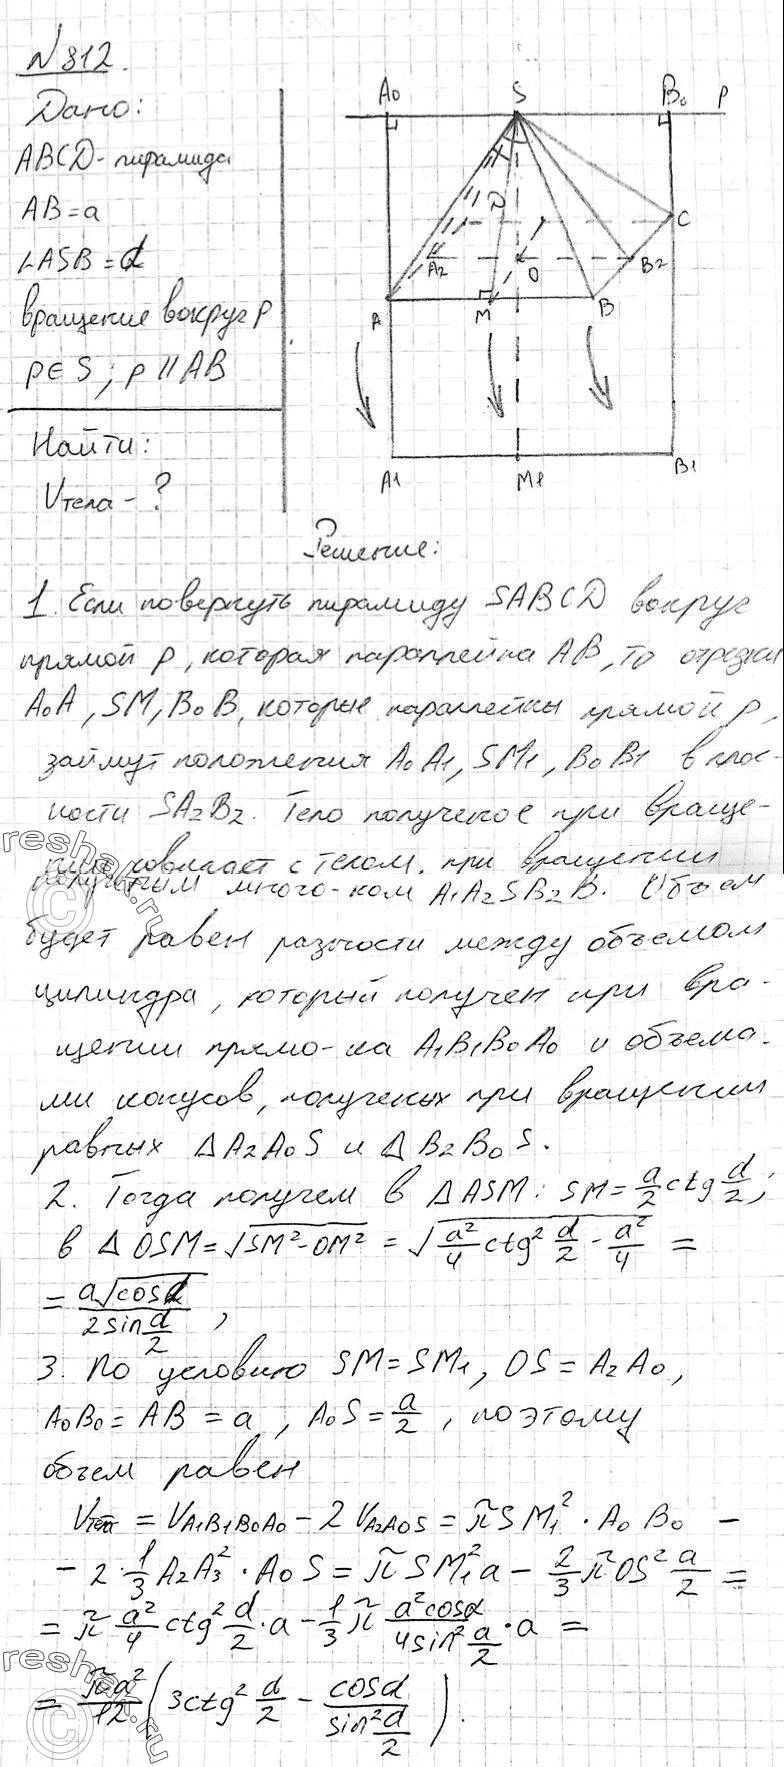 N 812.
Дано:
ABCD - пирамида
AB = a
∠ASB = α
вращение вокруг p
p ∈ S ; p || AB
Найти:
Vтела - ?
A0 S B0 P
D C
A2 O B2
A M B
A1 M1 B1
Решение:
1. Если повернуть пирамиду SABCD вокруг
прямой p, которая параллейна AB, то отрезки
A0A, SM, B0B, которые параллейны прямой p,
займут положения A0A1, SM1, B0B1 в плос-
кости SA2B2. Тело полученое при враще-
нии совпадает с телом, при вращении
полученым много-ком A1A2SB2B. Объем
будет равен разности между объемом
цилиндра, который получен при вра-
щении прямо-ка A1B1B0A0 и объема-
ми конусов, полученых при вращении
равных ΔA2A0S и ΔB2B0S.
2. Тогда получем в ΔASM: SM = a/2 ctg α/2;
в ΔOSM = √(SM² - OM²) = √(a²/4 ctg² α/2 - a²/4) =
= a√cosα / 2sin α/2 ,
3. По условию SM = SM1, OS = A2A0,
A0B0 = AB = a , A0S = a/2 , поэтому
обем равен
Vтел = VA1B1B0A0 - 2 VA2A0S = π SM1² · A0B0 -
- 2 · 1/3 A2A3² · A0S = π SM1² a - 2/3 π OS² a/2 =
= π a²/4 ctg² α/2 · a - 1/3 π a² cosα / 4sin² a/2 · a =
= πa²/12 (3ctg² α/2 - cosα / sin² α/2).
reshak.ru
reshak.ru